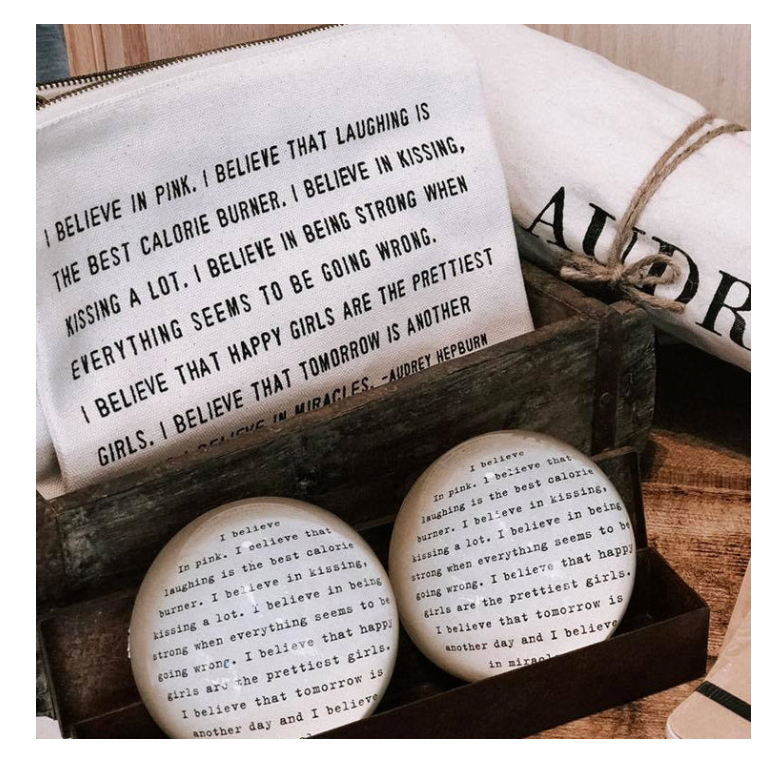 I BELIEVE IN PINK. I BELIEVE THAT LAUGHING IS
THE BEST CALORIE BURNER. I BELIEVE IN KISSING,
KISSING A LOT. I BELIEVE IN BEING STRONG WHEN
EVERYTHING SEEMS TO BE GOING WRONG.
I BELIEVE THAT HAPPY GIRLS ARE THE PRETTIEST
GIRLS. I BELIEVE THAT TOMORROW IS ANOTHER
I BELIEVE IN MIRACLES. -AUDREY HEPBURN
AUDR
I believe
In pink. I believe that
laughing is the best calorie
burner. I believe in kissing,
kissing a lot. I believe in being
strong when everything seems to be
going wrong. I believe that happy
girls are the prettiest girls.
I believe that tomorrow is
another day and I believe
I believe
In pink. I believe that
laughing is the best calorie
burner. I believe in kissing,
kissing a lot. I believe in being
strong when everything seems to be
going wrong. I believe that happy
girls are the prettiest girls.
I believe that tomorrow is
another day and I believe
in miracl